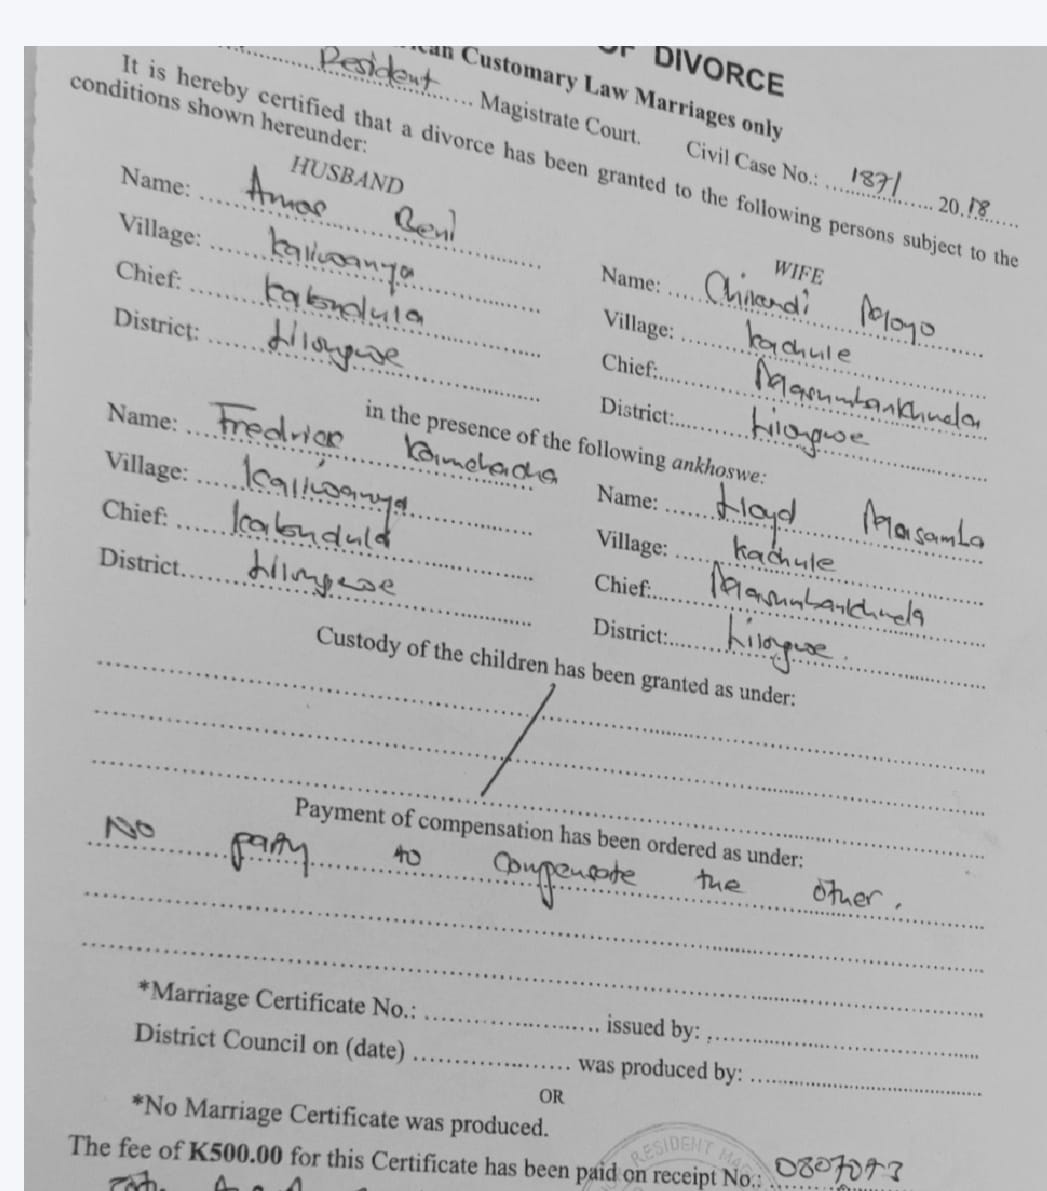 OF DIVORCE
can Customary Law Marriages only
Resident Magistrate Court. Civil Case No.: 187/ 2018
It is hereby certified that a divorce has been granted to the following persons subject to the
conditions shown hereunder:
HUSBAND
Name: Amos Beni
Village: Kaliwanya
Chief: Kabndula
District: Lilongwe
WIFE
Name: Moyo
Village: Kachule
Chief: Masumbankhunda
District: Lilongwe
in the presence of the following ankhoswe:
Name: Fredrick
Village: Kaliwanya
Chief: Kabnduld
District Lilongwe
Name: Lloyd Masamba
Village: Kachule
Chief: Masumbankhunda
District: Lilongwe.
Custody of the children has been granted as under:
Payment of compensation has been ordered as under:
No party to compensate the other.
*Marriage Certificate No.: issued by:
District Council on (date) was produced by:
OR
*No Marriage Certificate was produced.
RESIDENT
The fee of K500.00 for this Certificate has been paid on receipt No.: 0807093